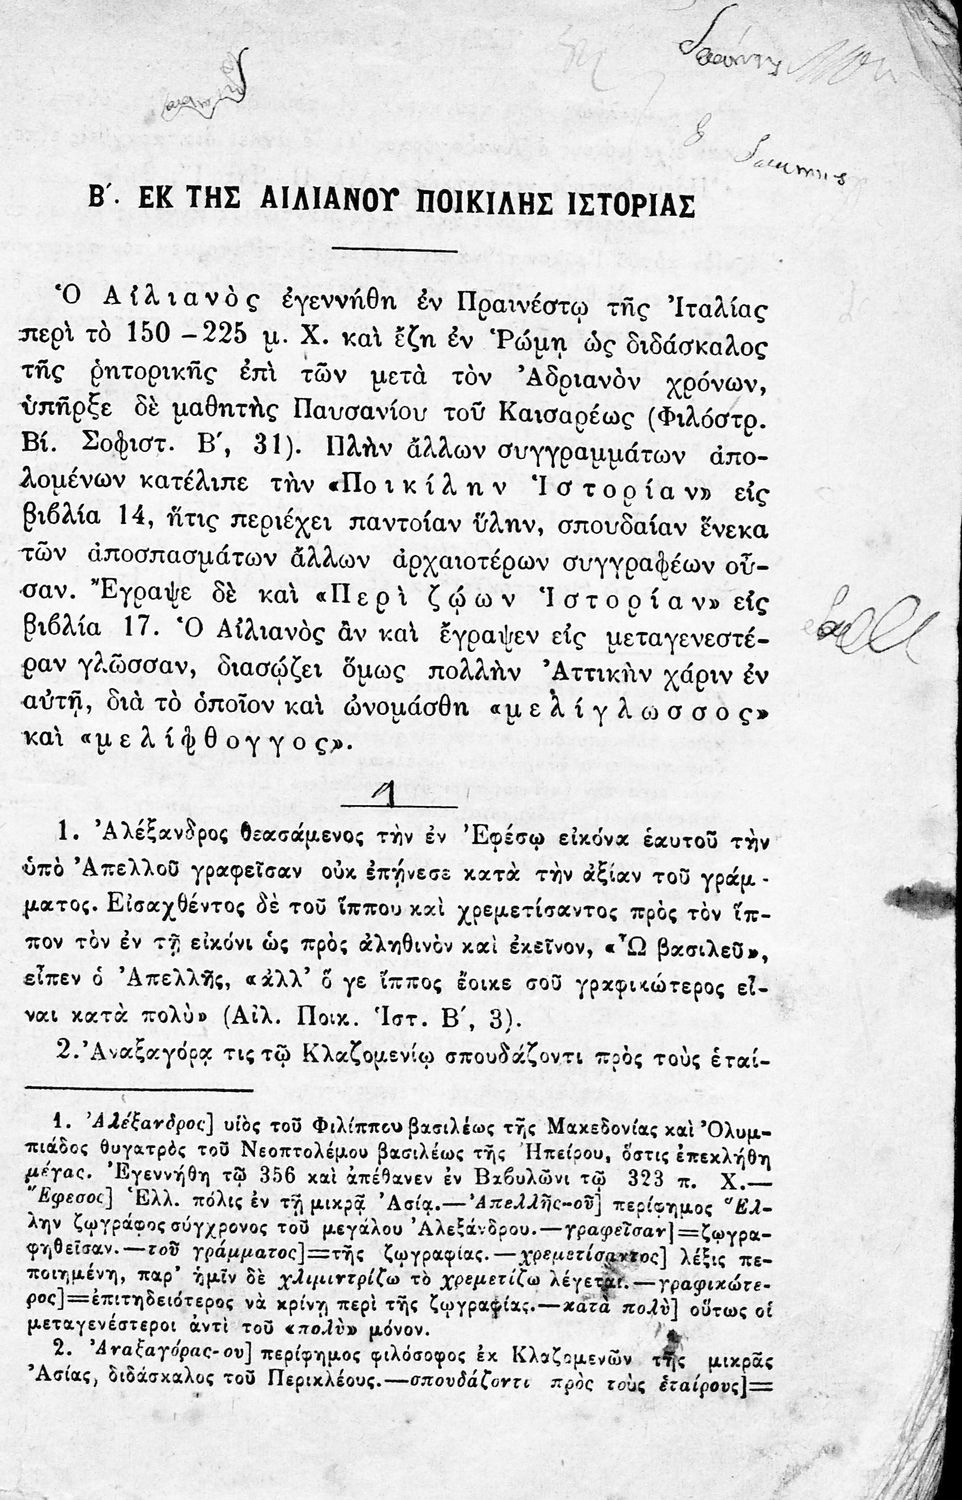 Β΄. ΕΚ ΤΗΣ ΑΙΛΙΑΝΟΥ ΠΟΙΚΙΛΗΣ ΙΣΤΟΡΙΑΣ
Ὁ Αἰλιανὸς ἐγεννήθη ἐν Πραινέστῳ τῆς Ἰταλίας
περὶ τὸ 150 – 225 μ. Χ. καὶ ἔζη ἐν Ῥώμῃ ὡς διδάσκαλος
τῆς ῥητορικῆς ἐπὶ τῶν μετὰ τὸν Ἀδριανὸν χρόνων,
ὑπῆρξε δὲ μαθητὴς Παυσανίου τοῦ Καισαρέως (Φιλόστρ.
Βί. Σοφιστ. Β΄, 31). Πλὴν ἄλλων συγγραμμάτων ἀπο-
λομένων κατέλιπε τὴν «Ποικίλην Ἱστορίαν» εἰς
βιβλία 14, ἥτις περιέχει παντοίαν ὕλην, σπουδαίαν ἕνεκα
τῶν ἀποσπασμάτων ἄλλων ἀρχαιοτέρων συγγραφέων οὖ-
σαν. Ἔγραψε δὲ καὶ «Περὶ ζῴων Ἱστορίαν» εἰς
βιβλία 17. Ὁ Αἰλιανὸς ἂν καὶ ἔγραψεν εἰς μεταγενεστέ-
ραν γλῶσσαν, διασῴζει ὅμως πολλὴν Ἀττικὴν χάριν ἐν
αὐτῇ, διὰ τὸ ὁποῖον καὶ ὠνομάσθη «μελίγλωσσος»
καὶ «μελίφθογγος».
1
1. Ἀλέξανδρος θεασάμενος τὴν ἐν Ἐφέσῳ εἰκόνα ἑαυτοῦ τὴν
ὑπὸ Ἀπελλοῦ γραφεῖσαν οὐκ ἐπῄνεσε κατὰ τὴν ἀξίαν τοῦ γράμ-
ματος. Εἰσαχθέντος δὲ τοῦ ἵππου καὶ χρεμετίσαντος πρὸς τὸν ἵπ-
πον τὸν ἐν τῇ εἰκόνι ὡς πρὸς ἀληθινὸν καὶ ἐκεῖνον, «Ὦ βασιλεῦ»,
εἶπεν ὁ Ἀπελλῆς, «ἀλλ' ὅ γε ἵππος ἔοικε σοῦ γραφικώτερος εἶ-
ναι κατὰ πολὺ» (Αἰλ. Ποικ. Ἱστ. Β΄, 3).
2. Ἀναξαγόρᾳ τις τῷ Κλαζομενίῳ σπουδάζοντι πρὸς τοὺς ἑταί-
1. Ἀλέξανδρος] υἱὸς τοῦ Φιλίππου βασιλέως τῆς Μακεδονίας καὶ Ὀλυμ-
πιάδος θυγατρὸς τοῦ Νεοπτολέμου βασιλέως τῆς Ἠπείρου, ὅστις ἐπεκλήθη
μέγας. Ἐγεννήθη τῷ 356 καὶ ἀπέθανεν ἐν Βαβυλῶνι τῷ 323 π. Χ.—
Ἔφεσος] Ἑλλ. πόλις ἐν τῇ μικρᾷ Ἀσίᾳ.—Ἀπελλῆς-οῦ] περίφημος Ἕλ-
λην ζωγράφος σύγχρονος τοῦ μεγάλου Ἀλεξάνδρου.—γραφεῖσαν]=ζωγρα-
φηθεῖσαν.—τοῦ γράμματος]=τῆς ζωγραφίας.—χρεμετίσαντος] λέξις πε-
ποιημένη, παρ' ἡμῖν δὲ χλιμιντρίζω τὸ χρεμετίζω λέγεται.—γραφικώτε-
ρος]=ἐπιτηδειότερος νὰ κρίνῃ περὶ τῆς ζωγραφίας.—κατὰ πολὺ] οὕτως οἱ
μεταγενέστεροι ἀντὶ τοῦ «πολὺ» μόνον.
2. Ἀναξαγόρας-ου] περίφημος φιλόσοφος ἐκ Κλαζομενῶν τῆς μικρᾶς
Ἀσίας, διδάσκαλος τοῦ Περικλέους.—σπουδάζοντι πρὸς τοὺς ἑταίρους]=